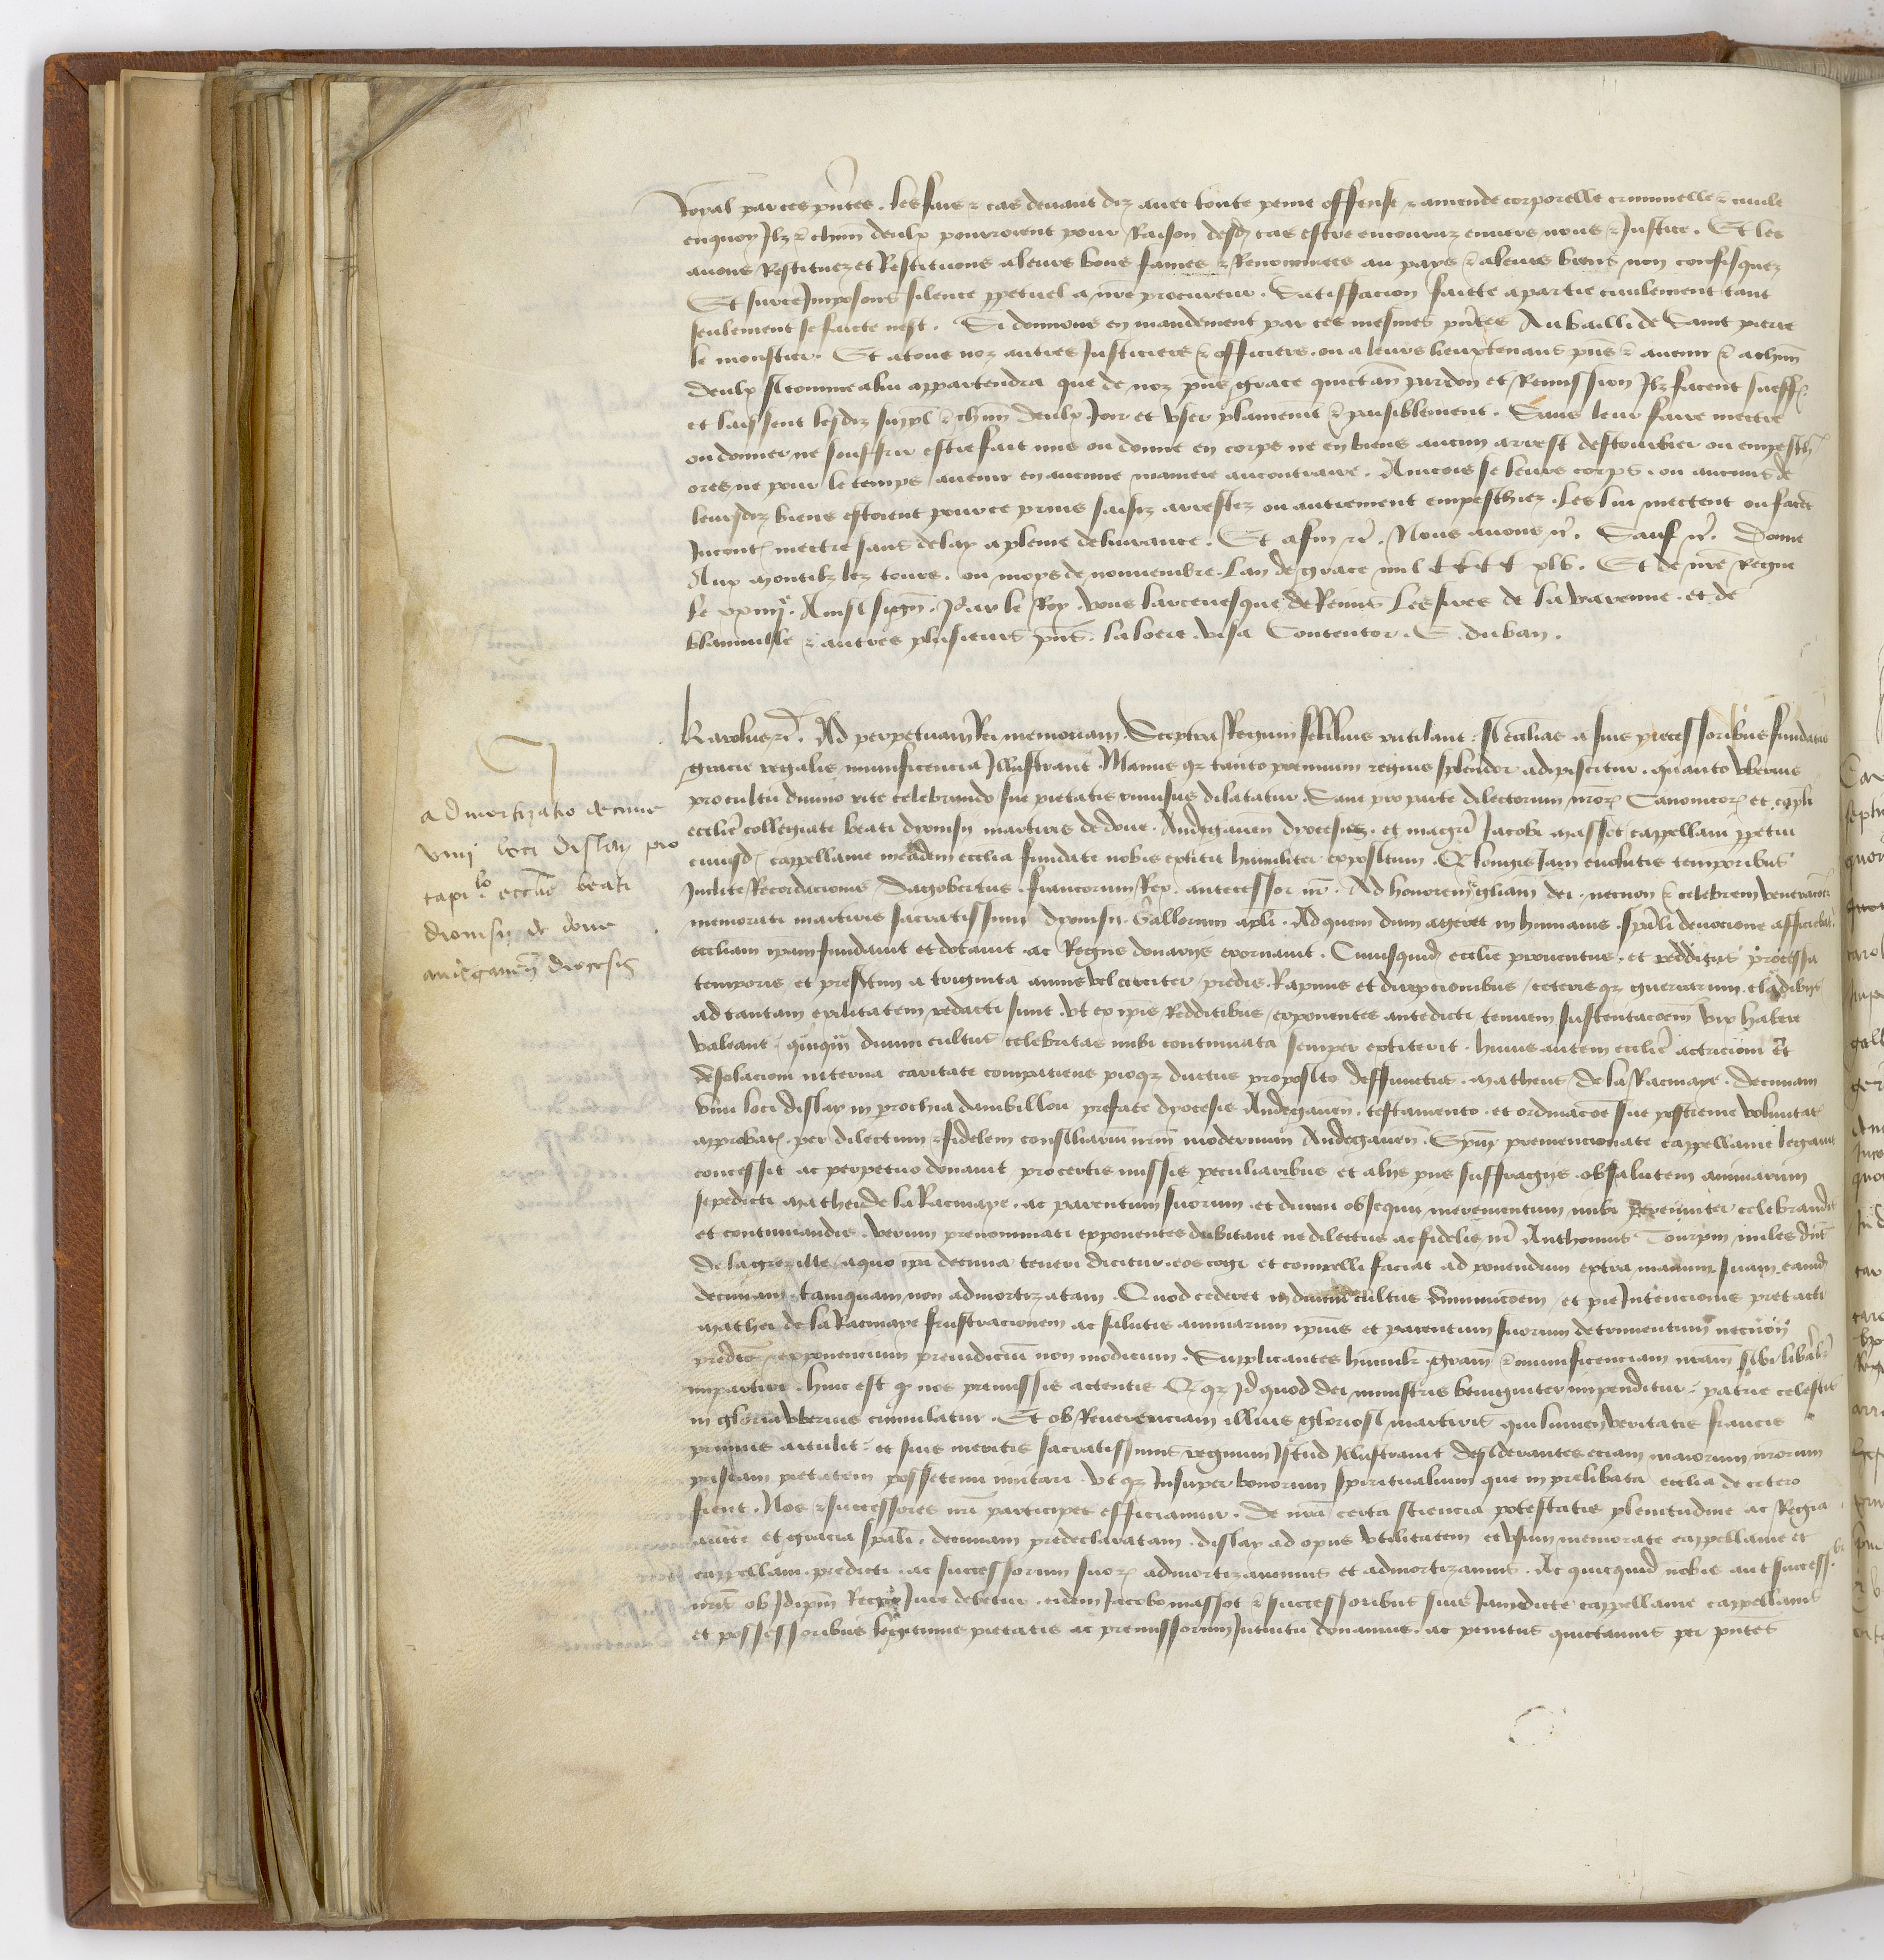 Royal par ces pñtes. les fais & cas devant diz avec toute peine offense & amende corporelle criminelle & civile
enquoy Ilz & chũn deulx pourroient pour Raison desd cas estre encouruz envers nous & Justice. Et les
avons Restituez et Restituons a leurs bons fames & Renommees au pays & a leurs biens non confisquez
Et sur ce Imposons silence ppetuel a nre procureur. Satisfacion faicte a partie civilement tant
seulement se faicte nest. Si donnons en mandement par ces mesmes pñtes Au bailli de Saint pierre
le monstier. Et atous noz autres Justiciers & officiers. ou a leurs lieuxtenans pñs & avenir & a chũn
deulx si comme a lui appartendra que de noz pñs grace quictan pardon et Remission Ilz facent sueff
et laissent lesdiz suppl & chũn deulx Joir et User plainemt & paisiblement. Sans leur faire mectre
ou donner ne souffrir estre fait mis ou donne en corps ne en biens aucun arrest destourbier ou empesch
ores ne pour le temps avenir en aucune maniere aucontraire. Aincois se leurs corps. ou aucuns de
leursdiz biens estoient pource prins saisiz arrestez ou autrement empeschez. Les lui mectent ou facet
Incont mectre sans delay a pleine delivrance. Et afin &c. Nous avons &c. Sauf &c. Donne
Aux Montilz lez tours. ou moys de novembre. Lan de grace mil CCCC xlv. Et de nre Regne
le xxiiiie. Ainsi signe. Par le Roy. vous larcevesque de Reims Les sires de la varenne. et de
blainville & autres plusieurs pñs. la loere. visa Contentor. E. duban.
Karolus &c. Ad perpetuam Rei memoriam. Sceptra Regum felicius rutilant. si ecclias a suis precessoribus fundatas
gracie regalis munificencia Illustrant. Maius qz tanto premium regius splendor adipiscitur. quanto uberius
pro cultu divino rite celebrando sue pietatis munus dilatatur. Sane pro parte dilectorum nror Canonicor et capli
ecclie collegiate beati dyonisii martiris de doue. Andegaven dyocesis. et magri Jacobi massot cappellani ppetui
cuiusd cappellanie in eadem ecclia fundate nobis extitit humiliter expositum. Q longis Iam evolutis temporibus
Inclite Recordacionis Dagobertus. francorum Rex. antecessor nr. Ad honorem & gliam dei. necnon & celebrem veneracoem
memorati martiris sacratissimi dyonisii. Gallorum apli. Ad quem dum ageret in humanis. spali devocione afficiebat
eccliam ipam fundavit et dotavit. ac Regiis donariis exornavit. Cuiusquid ecclie proventus. et redditus processu
temporis. et presertim a triginta annis vel circiter. predis. Rapinis et direpcionibus. ceteris qz guerrarum cladibus
ad tantam exilitatem redacti sunt. Ut ex ipis Redditibus exponentes antedicti tenuem sustentacoem vix habere
valeant. quiqui divini cultus celebritas inibi continuata semper extiterit. huius autem ecclie
desolacioni interna caritate compatiens pioqz ductus proposito deffunctus. matheus de la Racinaye. decimam
vini loci dislay in prochia dambillou prefate dyocesis Andegaven. testamento. et ordinacoe sue postreme voluntat
approbat. per dilectum & fidelem consiliarium nrm modernum Andegaven. Epum premencionate cappellanie legavit
concessit ac perpetuo donavit pro certis missis peculiaribus et aliis piis suffragiis. ob salutem animarum
sepedicti mathei de la Racinaye. ac parentum suorum. et divini obsequii incrementum inibi perenniter celebrandis
et continuandis. verum prenominati exponentes dubitant ne dilectus ac fidelis nr Anthonius Tourpin miles dns
de la grezille. a quo ipa decima teneri dicitur. eos cogi et compelli faciat ad ponendum extra manum suam eamd
decimam. tamquam non admortizatam. Quod cederet in divini cultus diminucoem. et pie Intencionis pretacti
mathei de la Racinaye frustracionem ac salutis animarum ipius et parentum suorum detrimentum necnon
predtor exponencium preiudicium non modicum. Supplicantes humilr gram & munificenciam nram sibi liberalr
impartiri. hinc est q nos premissis actentis. Q qz Id quod dei ministris benigniter impenditur. patrie celestis
in gloria uberius cumulatur. Et ob Reverenciam illius gloriosi martiris qui lumen veritatis francis
primus attulit. et suis meritis sacratissimis regnum Istud Illustravit desiderantes eciam maiorum nrorum
priscam pietatem possetenus imitari. Ut qz Insuper bonorum spiritualium que in prelibata ecclia de cetero
fient. Nos & successores nri participes efficiamur. De nra certa sciencia potestatis plenitudine ac Regia
aucte et gracia spali. decimam predeclaratam. dislay ad opus utilitatem et usum memorate cappellanie et
cappellani. predicti. ac successorum suor admortizavimus et admortizamus. Ac quicquid nobis aut successbs
nris ob Id ipm Regio Jure debetur. eidem Jacobo massot & successoribus suis Iamdicte cappellanie cappellanis
et possessoribus legitimis pietatis ac premissorum Intuitu donamus. ac penitus quictamus per pntes
admortizatio decime
vini loci dislay pro
capilo ecclie beati
dionisii de doue
andegaven diocesis